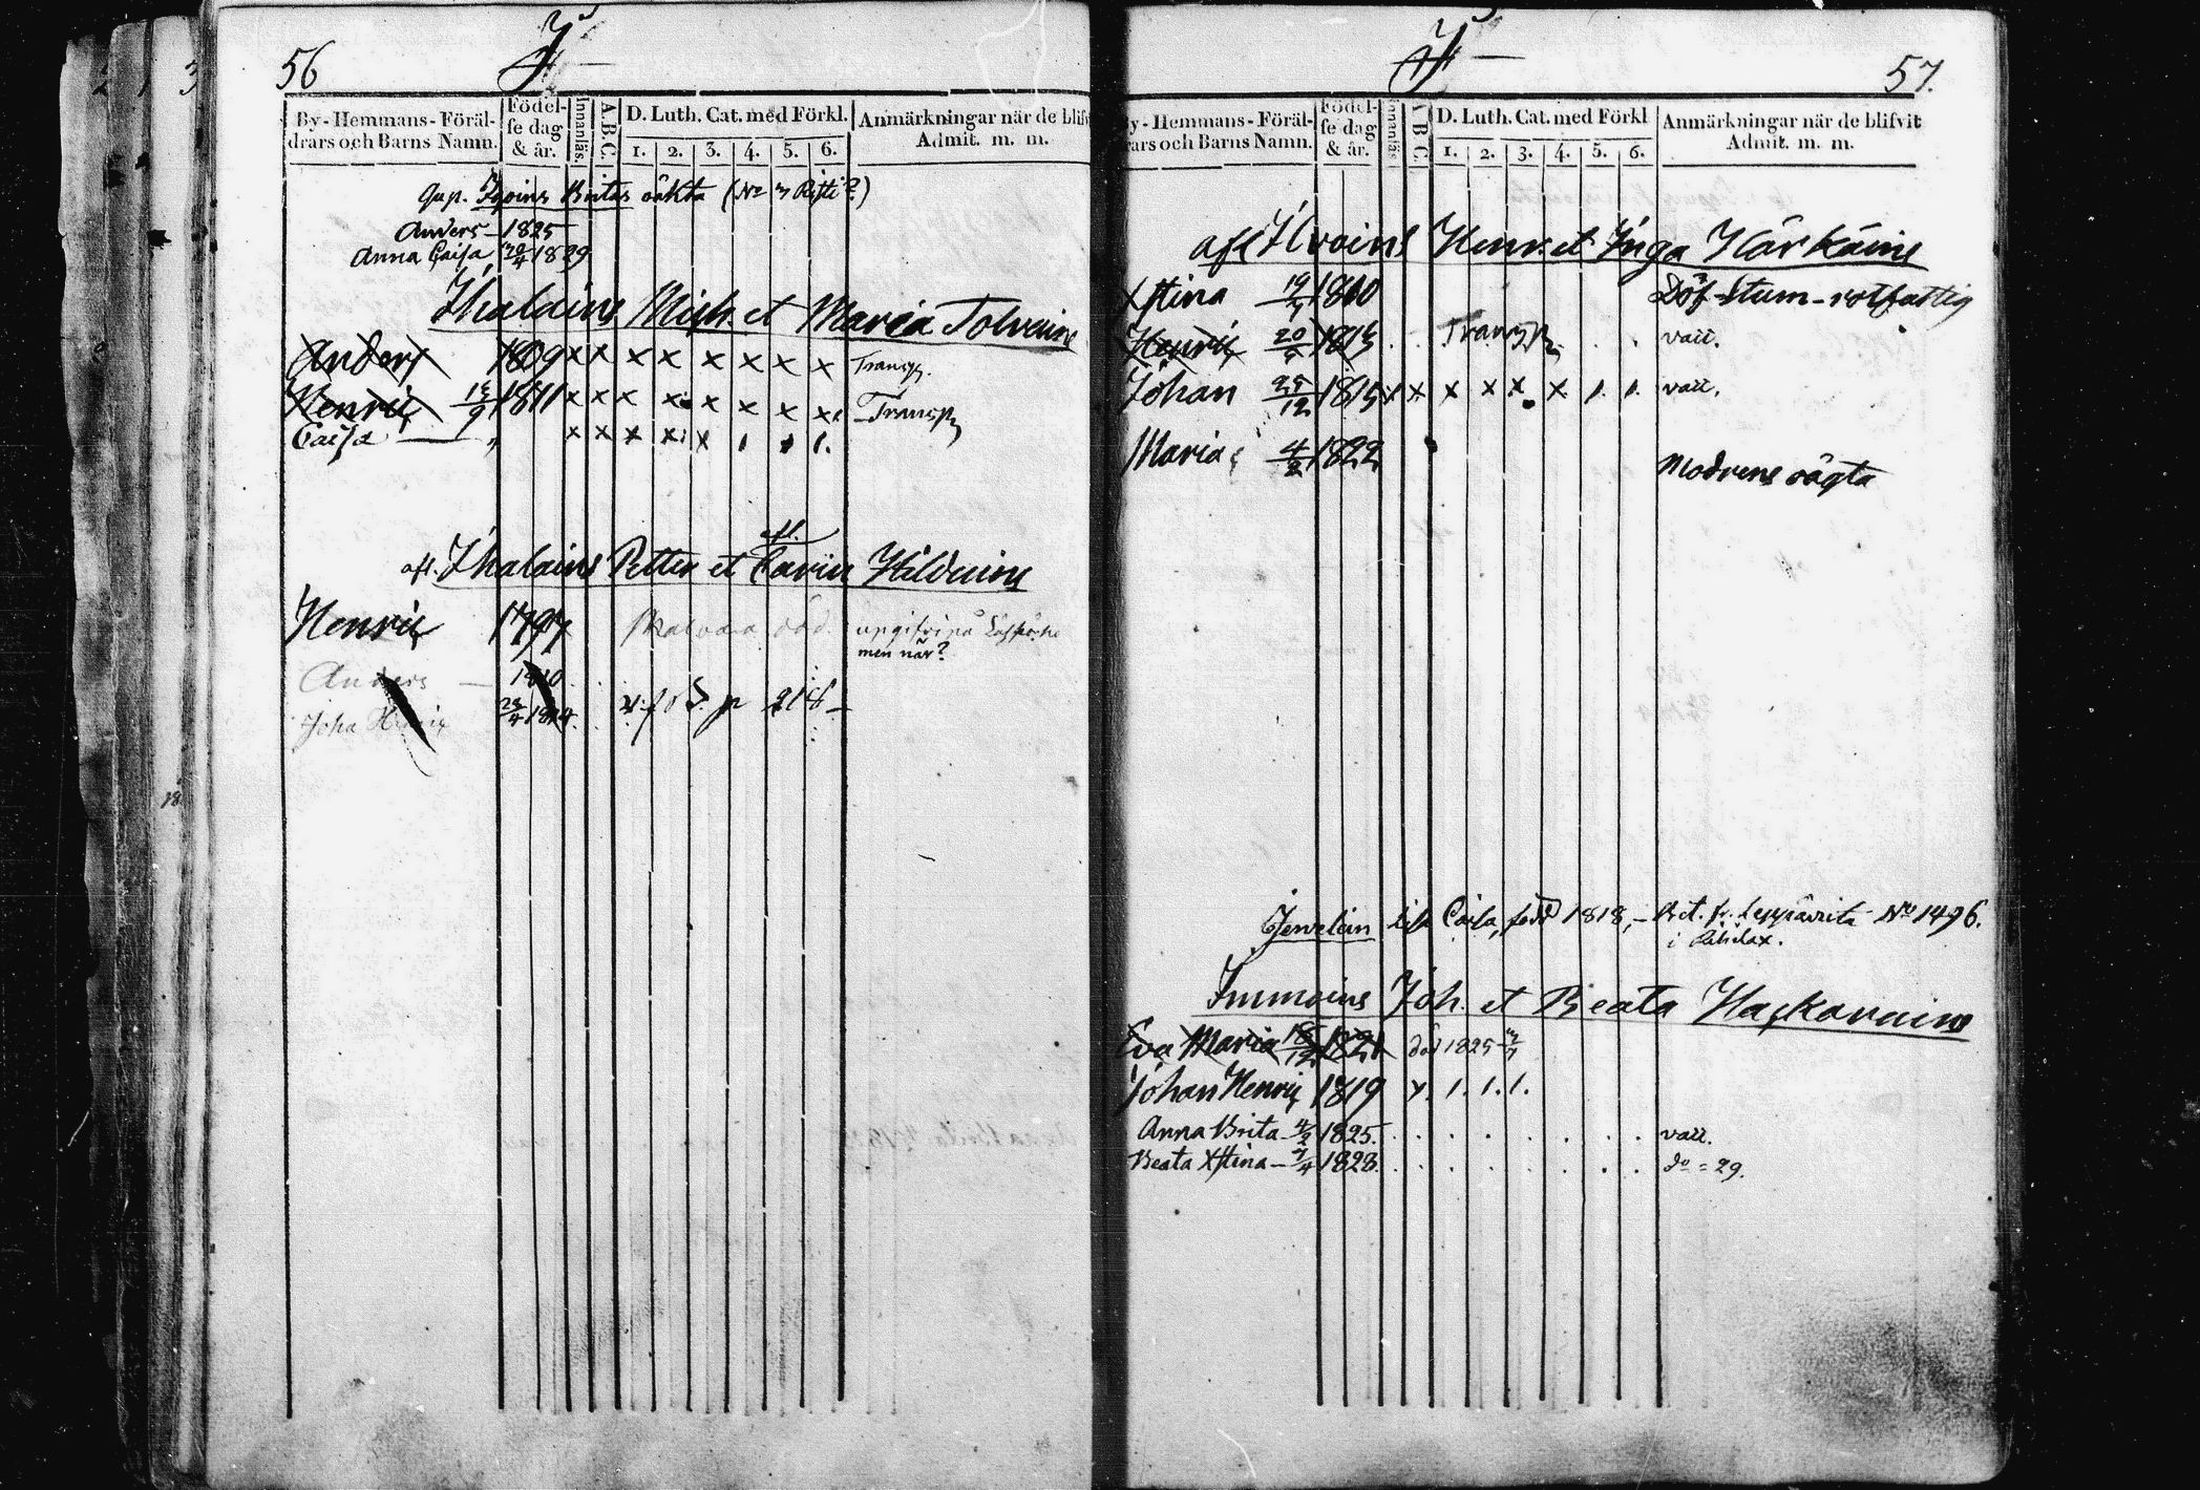 56
J
By-Hemmans-Föräl-
drars och Barns Namn.
Födel-
se dag
& år.
Innanläs.
A.B.C.
D. Luth. Cat. med Förkl.
1. 2. 3. 4. 5. 6.
Anmärkningar när de blifv
Admit. m. m.
Britas oäkta (No 3
Anders - 1825
Anna Caisa 20/4 1829
Ihalains Mich. et Maria Tolvains
Anders 1809 x x x x x x x x Transp.
Henric 1811 x x x x x x x x Transp
Caisa — " x x x x x 1 1 1.
afl.
afl. Ihalains Petter et Carin Hilduins
Henric 1797
men när?
Anders — 1810
Joha Henric
J
57.
y-Hemmans-Föräl-
rars och Barns Namn.
Födel-
se dag
& år.
Innanläs
A B C.
D. Luth. Cat. med Förkl
1. 2. 3. 4. 5. 6.
Anmärkningar när de blifvit
Admit. m. m.
afl Henr. et Inga Härkäins
Xstina 1810 Döf-stum-rotfattig
Henric 1813 Transp vacc.
Johan 25/12 1815 x x x x x x 1. 1. vacc.
Maria 4/2 1822
Modrens oägta
Caisa, född 1818, - Bet. fr. Leppävirta No 1496.
Immoins Joh. et Beata
Eva Maria 18/12 1821 död 1825
Johan Henric 1819 x. 1. 1. 1.
Anna Brita - 4/2 1825. vacc.
Beata Xstina - 7/4 1828. do = 29.